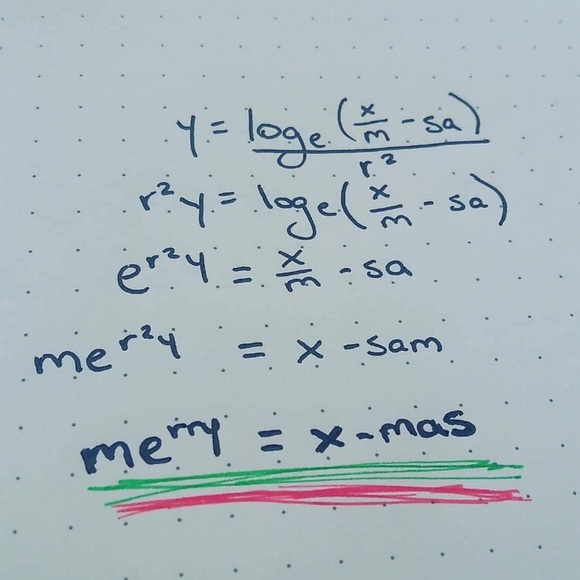 y = logₑ(x/m - sa)/r²
r²y = logₑ(x/m - sa)
e^(r²y) = x/m - sa
me^(r²y) = x - sam
me^(rry) = x - mas